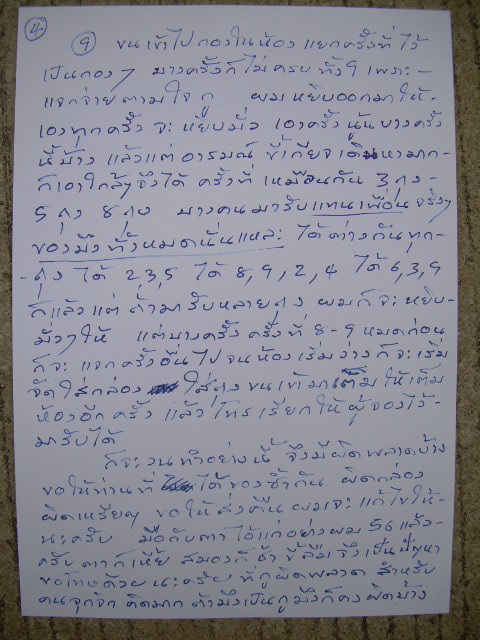 ④
⑨ ขนเข้าไปกองในห้อง แยกครั้งที่ไว้
เป็นกองๆ บางครั้งก็ไม่ครบ ทั้ง 9 เพราะ-
แจกจ่ายตามใจ กู ผมหยิบออกมาให้-
เองทุกครั้ง จะ หยิบมั่ว เอาครั้งนู้นบางครั้ง
นี้บ้าง แล้วแต่ อารมณ์ ขี้เกียจเดินหามาก-
ก็เอาใกล้ๆจึงได้ ครั้งที่ เหมือนกัน 3 ถุง-
5 ถุง 8 ถุง บางคนมารับแทนเพื่อนจริงๆ
ของมึงทั้งหมดนั่นแหละ ได้ต่างกันทุก-
-ถุง ได้ 2,3,5 ได้ 8,9,2,4 ได้ 6,3,9
ก็แล้วแต่ ถ้ามารับหลายถุง ผมก็จะหยิบ-
มั่วๆให้ แต่บางครั้ง ครั้งที่ 8-9 หมดก่อน
ก็จะ แจกครั้งอื่นไป จนห้องเริ่มว่างก็จะเริ่ม
จัดใส่กล่อง ใส่ถุงขนเข้ามาเติมให้เต็ม
ห้องอีกครั้ง แล้วโทรเรียกให้ผู้จองไว้-
มารับได้
ก็จะวนทำอย่างนี้ จึงมีผิดพลาดบ้าง
ขอให้ท่านที่ ได้ของซ้ำกัน ผิดกล่อง
ผิดเหรียญ ขอให้ส่งคืน ผมจะ แก้ไขให้-
นะครับ มือกับตาไอ้แก่อย่างผม 56 แล้ว-
ครับ ตาก็เหี้ย สมองก็ช้า ขี้ลืม จึงเป็นปัญหา
ขอโทษด้วย นะครับ ที่กูผิดพลาด สำหรับ
คนจุกจิก คิดมาก ถ้ามึงเป็นกูมึงก็คงผิดบ้าง